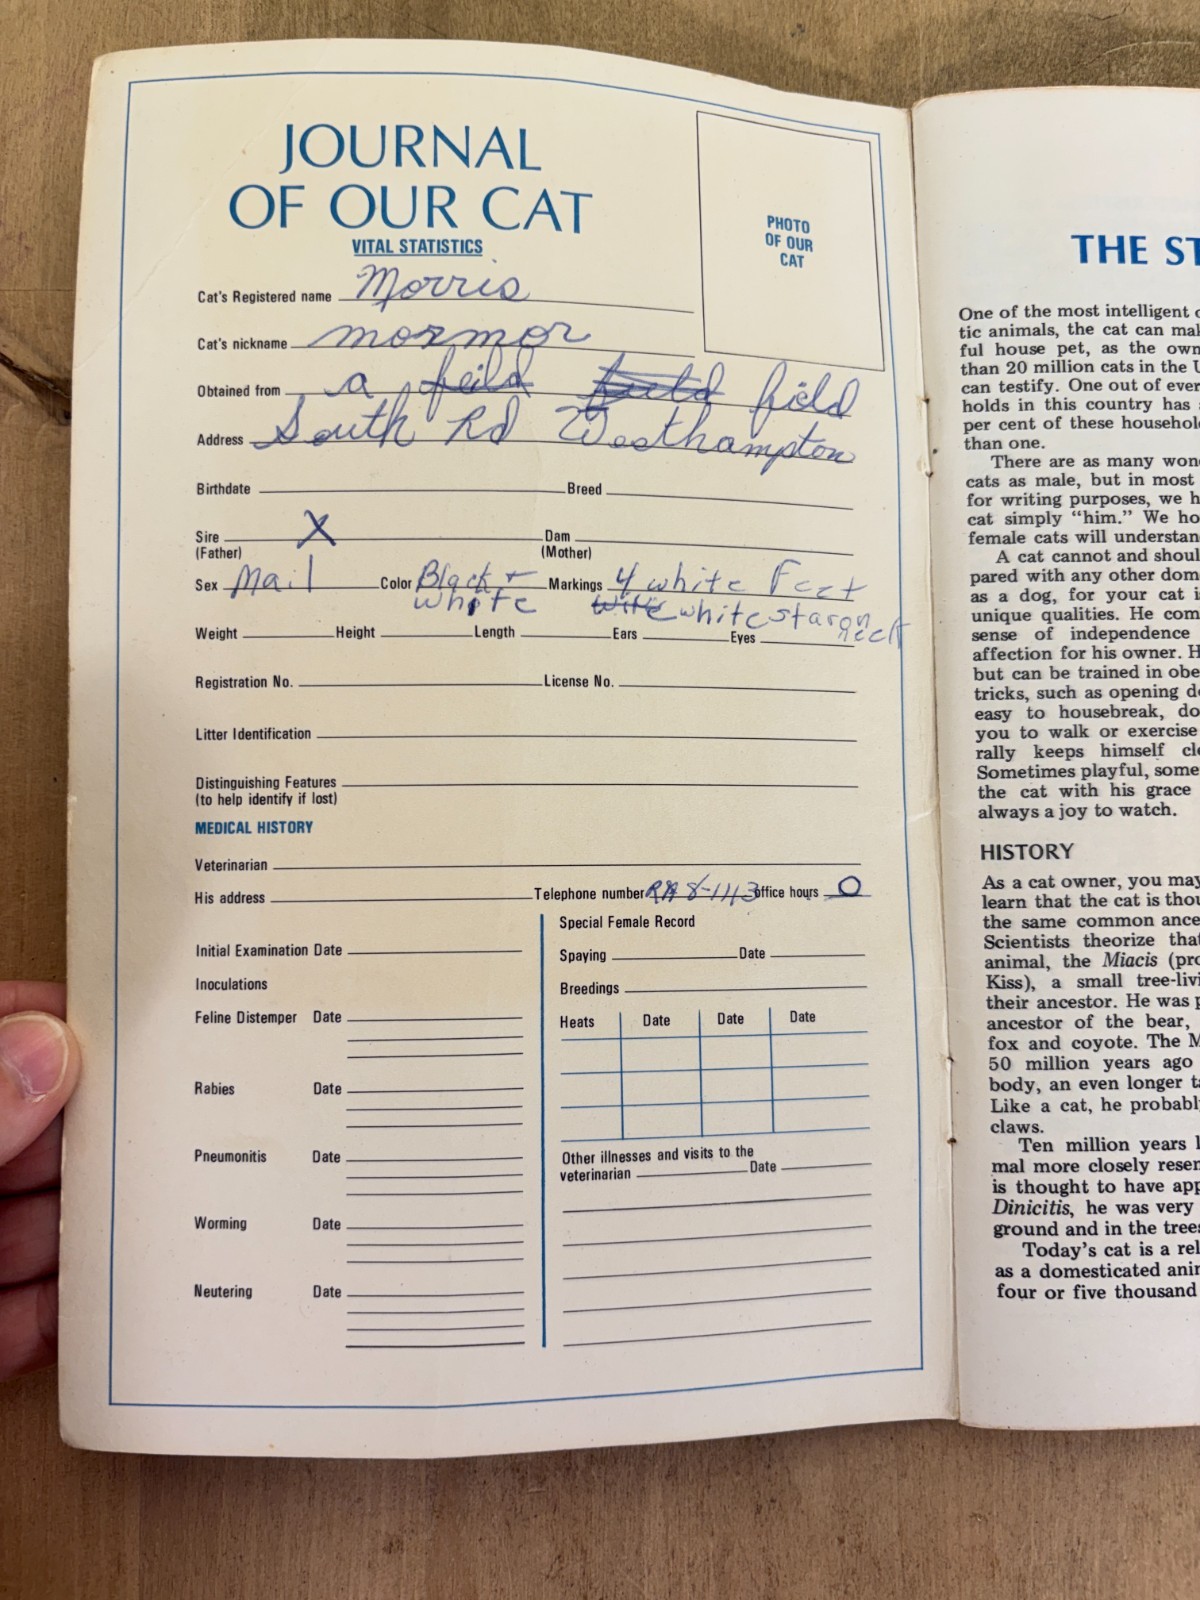 JOURNAL
OF OUR CAT
VITAL STATISTICS
PHOTO
OF OUR
CAT
Cat's Registered name Morris
Cat's nickname mormor
Obtained from a feild field
Address South Rd Westhampton
Birthdate Breed
Sire X Dam
(Father) (Mother)
Sex Mail Color Black + Markings 4 white Feet
white white star on
neck
Weight Height Length Ears Eyes
Registration No. License No.
Litter Identification
Distinguishing Features
(to help identify if lost)
MEDICAL HISTORY
Veterinarian
His address Telephone number 8-1113 office hours O
Special Female Record
Initial Examination Date
Spaying Date
Inoculations
Breedings
Feline Distemper Date
Heats Date Date Date
Rabies Date
Pneumonitis Date
Other illnesses and visits to the
veterinarian Date
Worming Date
Neutering Date
THE ST
One of the most intelligent
tic animals, the cat can
ful house pet, as the
than 20 million cats in the
can testify. One out of
holds in this country has
per cent of these
than one.
There are as many
cats as male, but in most
for writing purposes, we
cat simply "him." We
female cats will
A cat cannot and
pared with any other
as a dog, for your cat
unique qualities. He
sense of independence
affection for his owner.
but can be trained in
tricks, such as opening
easy to housebreak,
you to walk or exercise
rally keeps himself
Sometimes playful,
the cat with his grace
always a joy to watch.
HISTORY
As a cat owner, you may
learn that the cat is
the same common
Scientists theorize
animal, the Miacis
Kiss), a small
their ancestor. He was
ancestor of the bear,
fox and coyote. The
50 million years ago
body, an even longer
Like a cat, he
claws.
Ten million years
mal more closely
is thought to have
Dinicitis, he was very
ground and in the
Today's cat is a
as a domesticated
four or five thousand